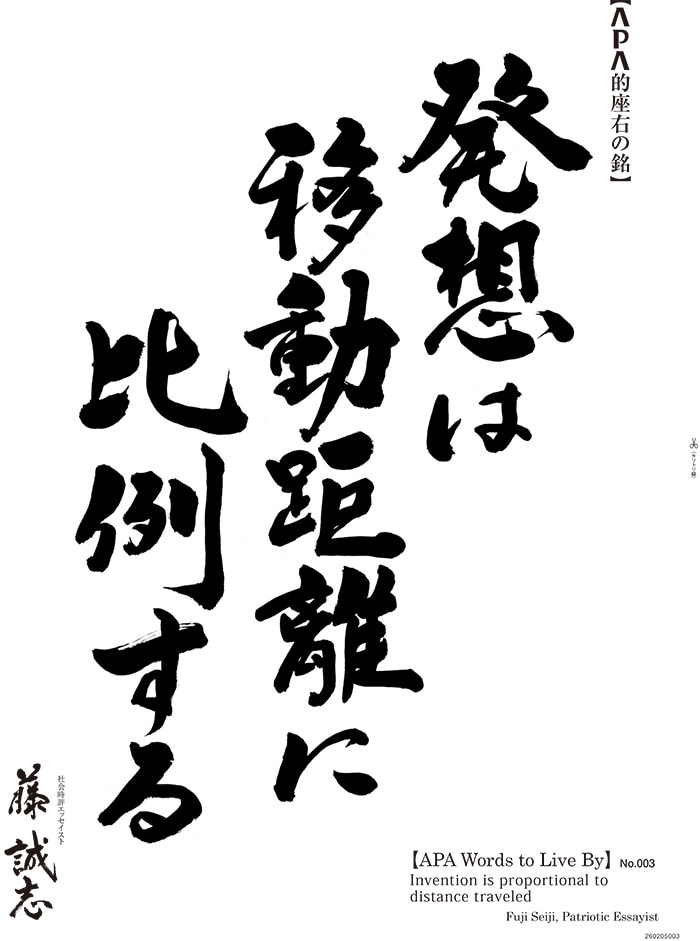 【APA的座右の銘】
発想は
移動距離に
比例する
社会時評エッセイスト
藤 誠志
(キリトリ線)
【APA Words to Live By】 No.003
Invention is proportional to
distance traveled
Fuji Seiji, Patriotic Essayist
260205003